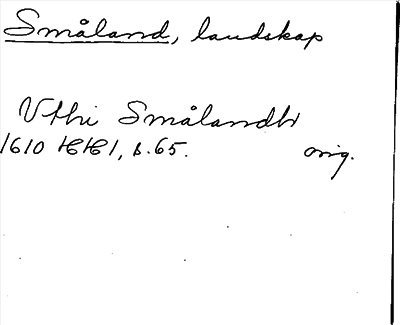 Småland, landskap
Vthi Smålandh
1610 HH 1, s. 65. orig.